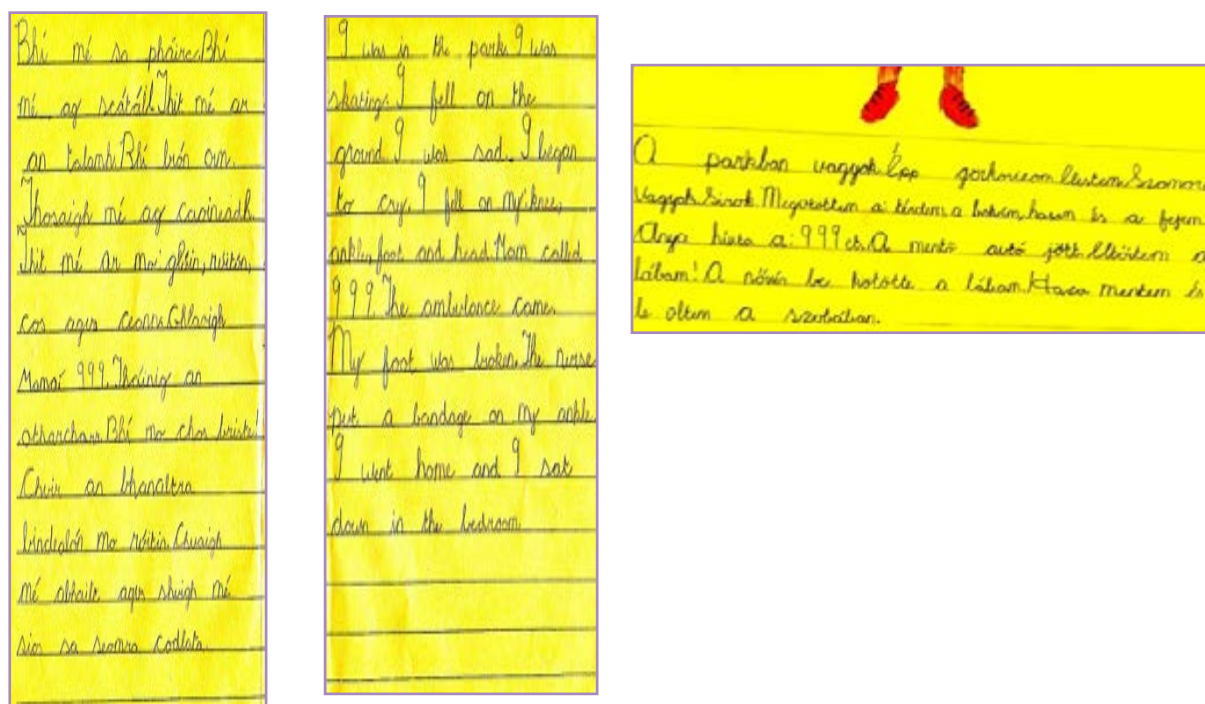 Bhí mé sa pháirc. Bhí
mé ag scátáil. Thit mé ar
an talamh. Bhí brón orm.
Thosaigh mé ag caoineadh.
Thit mé ar mo glúin, rúitín,
cos agus ceann. Ghlaoigh
Mamaí 999. Tháinig an
otharcharr. Bhí mo chos briste!
Chuir an bhanaltra
bindealán mo rúitín. Chuaigh
mé abhaile agus shuigh mé
síos sa seomra codlata.
I was in the park. I was
skating. I fell on the
ground. I was sad. I began
to cry. I fell on my knee,
ankle, foot and head. Mam called
999. The ambulance came.
My foot was broken. The nurse
put a bandage on my ankle.
I went home and I sat
down in the bedroom
A parkban vagyok. Épp
Vagyok. Sirok. a térdem, a hasam és a fejem
Anya hivta a: 999 ct. A mentő autó jött. a
lábam! A nővér be kötötte a lábam. mentem és
le a szobában.